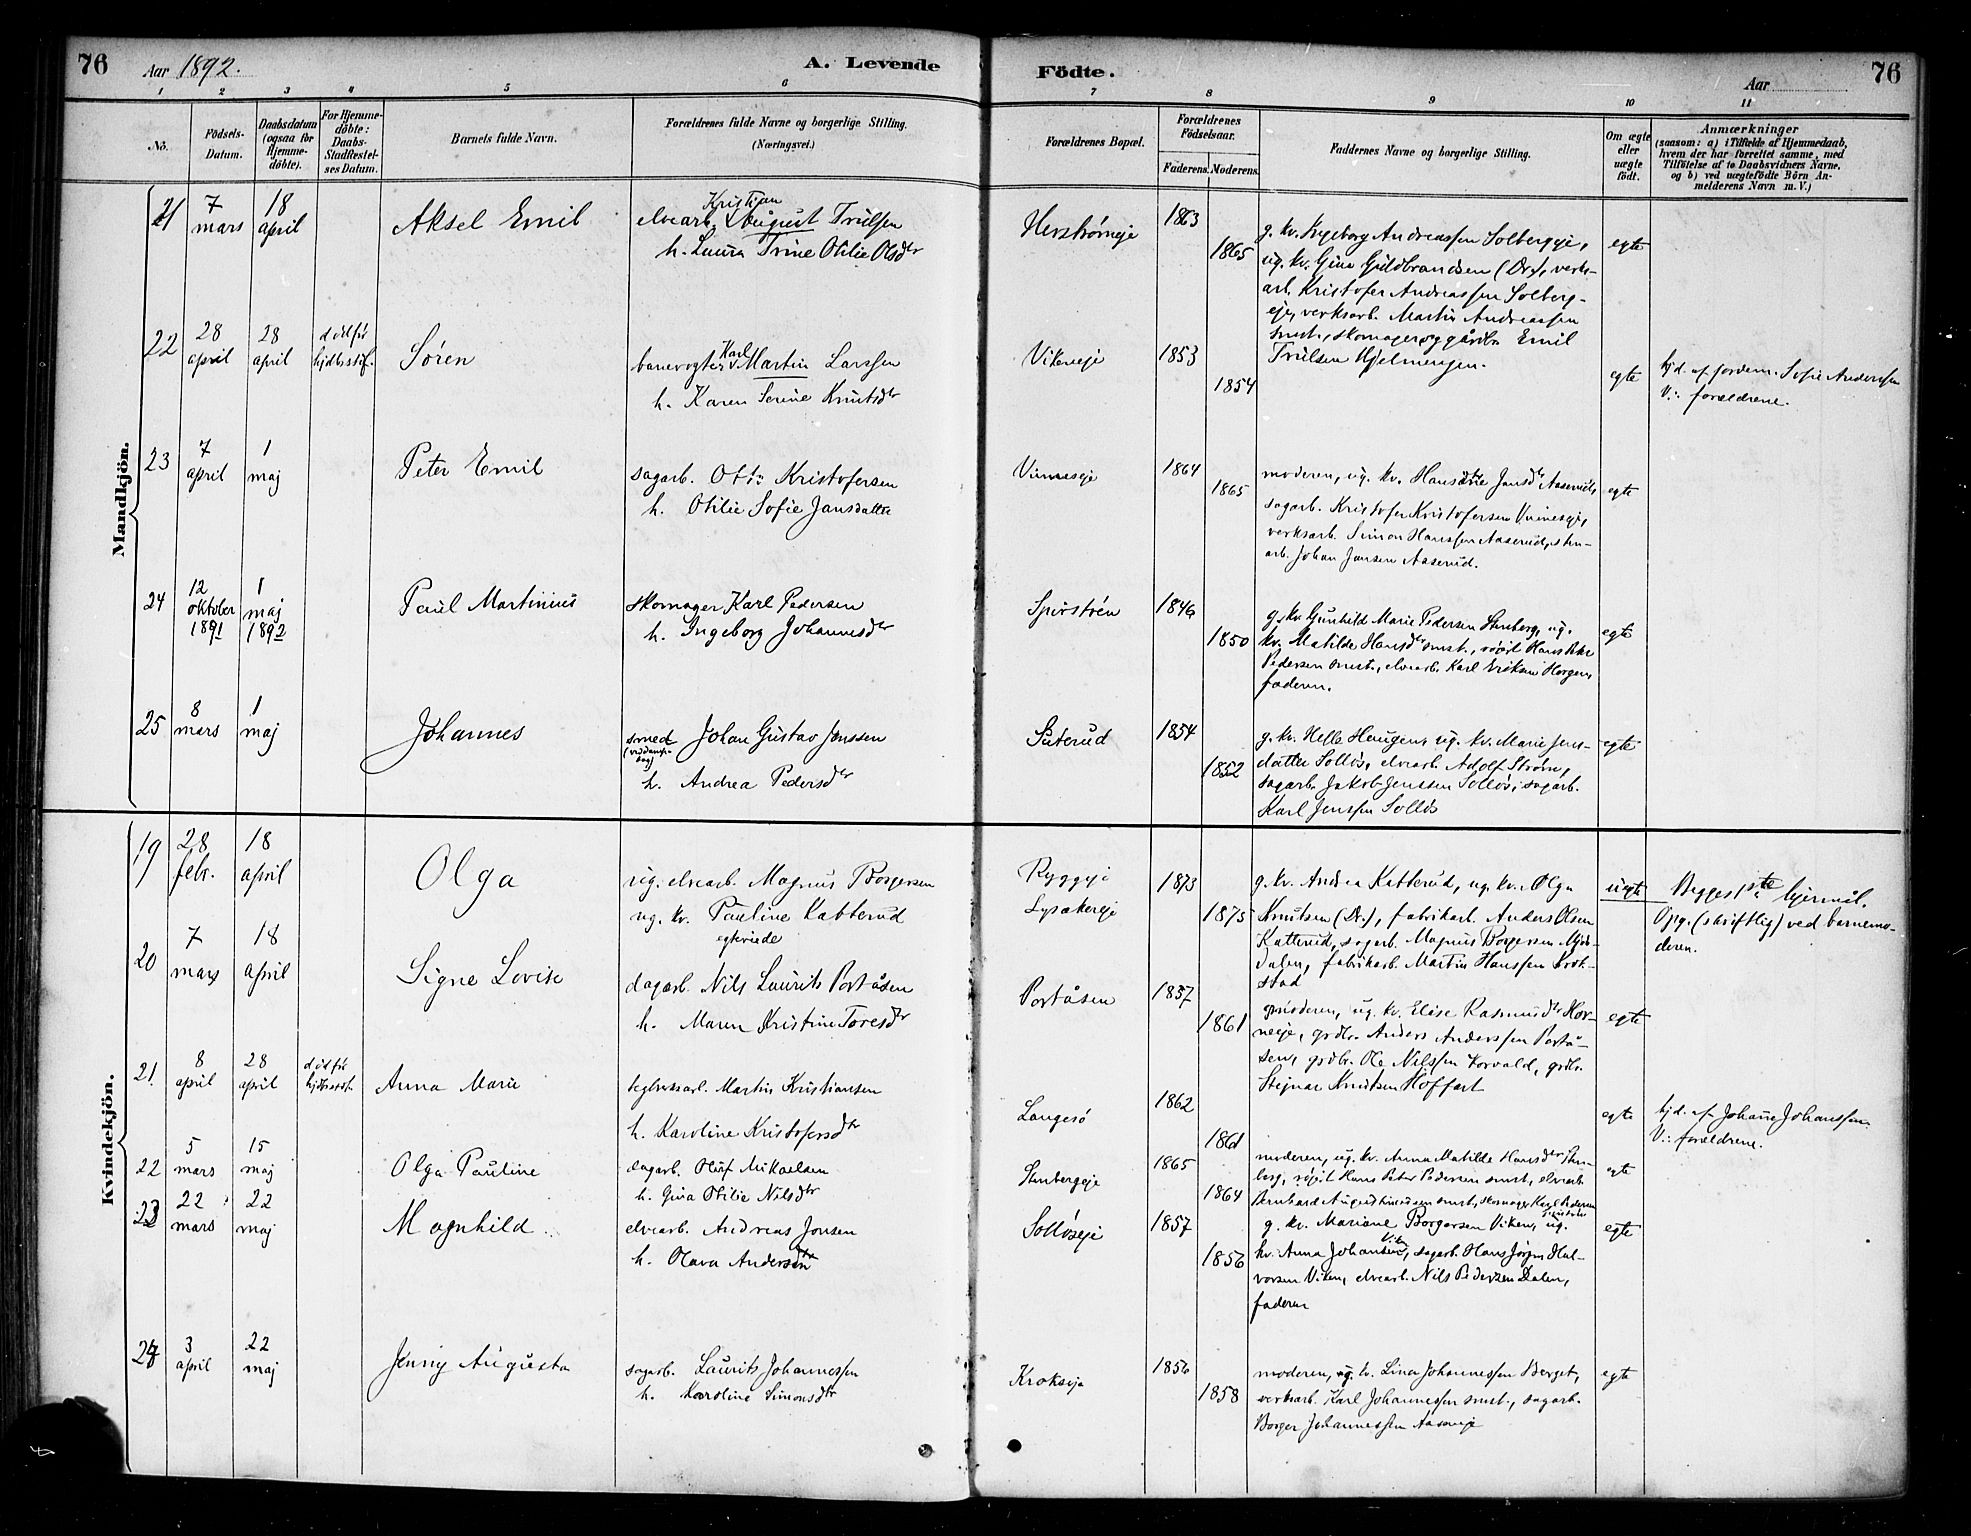 76 Aar 1892. A. Levende Födte. Aar 76
1 2 3 4 5 6 7 8 9 10 11
No. Födsels-Datum. Daabsdatum (ogsaa for Hjemme-döbte). For Hjemme-döbte: Daabs-Stadfæstel-ses Datum. Barnets fulde Navn. Forældrenes fulde Navne og borgerlige Stilling. (Næringsvei.) Forældrenes Bopæl. Forældrenes Födselsaar. Faderens. Moderens. Faddernes Navne og borgerlige Stilling. Om ægte eller uægte födt. Anmærkninger (saasom: a) i Tilfælde af Hjemmedaab, hvem der har forrettet samme, med Tilföielse af to Daabsvidners Navne, og b) ved uægtefödte Börn Anmelderens Navn m. V.)
Mandkjön.
21 7 mars 18 april Aksel Emil elvearb. Kristian August Trulsen
h. Laura Trine Otilie Olsdtr
1863
1865
g. kv. Ingeborg Andreassen Solbergeje,
ug. kv. Gina Guldbrandsen (Dr.), verks-
arb. Kristofer Andreassen Solberg-
eje, verksarb. Martin Andreassen
smst., skomager og gårdbr. Emil
Trulsen Hjelmengen.
egte
22 28 april 28 april død før hjdbsstf. Søren banevogter Karl Martin Larssen
h. Karen Serine Knutsdtr
Vikeneje 1853
1854
egte
hjd. af jordem. Sofie Anderssen
V.: forældrene.
23 7 april 1 maj Peter Emil sagarb. Otto Kristofersen
h. Otilie Sofie Jansdatter
Vinneseje 1864
1865
moderen, ug. kv. Hansine Jansdtr Aaserud,
sagarb. Kristofer Kristofersen Vinneseje,
verksarb. Simon Hanssen Aaserud, sten-
arb. Johan Jansen Aaserud.
egte
24 12 oktober 1891 1 maj 1892 Paul Martinius skomager Karl Pedersen
h. Ingeborg Johannesdtr
Spirstrøen 1846
1850
g. kv. Gunhild Marie Pedersen Stenberg, ug.
kv. Matilde Hansdtr smst., Hans Peter
Pedersen smst., elvearb. Karl Eriksen Horgen,
faderen.
egte
25 8 mars 1 maj Johannes smed Johan Gustav Jonssen
h. Andrea Pedersdtr
Saterud 1854
1852
g. kv. Helle Haugen, ug. kv. Marie Jens-
datter Solløs, elvearb. Adolf Strøm,
sagarb. Jakob Jenssen Solløs, sagarb.
Karl Jenssen Solløs
egte
Kvindekjön.
19 28 febr. 18 april Olga ug. elvearb. Magnus Borgersen
ug. kv. Pauline Katterud
Ryggeje
Lysakereje 1873
1875
g. kv. Andrea Katterud, ug. kv. Olga
Knutsen (Dr.), fabrikarb. Anders Olsen
Katterud, sagarb. Magnus Borgersen Mjøn-
dalen, fabrikarb. Martin Hanssen Krok-
stad
uegte
Begges 1ste lejermål.
Opg. (skriftlig) ved barnemo-
deren.
20 7 mars 18 april Signe Lovise egteviede
dagarb. Nils Laurits Portåsen
h. Maren Kristine Toresdtr
Portåsen 1837
1861
moderen, ug. kv. Elise Rasmusdtr Hor-
neeje, grdbr. Anders Anderssen Portå-
sen, grdbr. Ole Nilssen Korvald, grdbr.
Steinar Knutsen Hoffart
egte
21. 8 april 28 april død før hjdbsst. Anna Marie teglverksarb. Martin Kristiansen
h. Karoline Kristofersdtr
Langesø 1862
1861
egte
hjd. af Johanne Johanssen.
V.: forældrene.
22 5 mars 15 maj Olga Pauline sagarb. Oluf Mikaelsen
h. Gina Otilie Nilsdtr
Stenbergeje 1865
1864
moderen, ug. kv. Anna Matilde Hansdtr Sten-
berg, Hans Peter Pedersen smst., elvearb.
Bernhard August smst., skomager Karl Pedersen
egte
23 22 mars 22 maj Magnhild elvearb. Andreas Jonsen
h. Olava Andersdtr
Solløseje 1857
1856
g. kv. Mariane Borgersen Viken, ug.
kv. Anna Johansen Viken, sagarb. Hans Jørgen Hal-
vorsen Viken, elvearb. Nils Pedersen Dalen,
faderen
egte
24 3 april 22 maj Jenny Augusta sagarb. Laurits Johannessen
h. Karoline Simonsdtr
Krokseje 1856
1858
moderen, ug. kv. Lina Johannessen Berget,
verksarb. Karl Johannessen smst., sagarb.
Borger Johannessen Aaseneje
egte